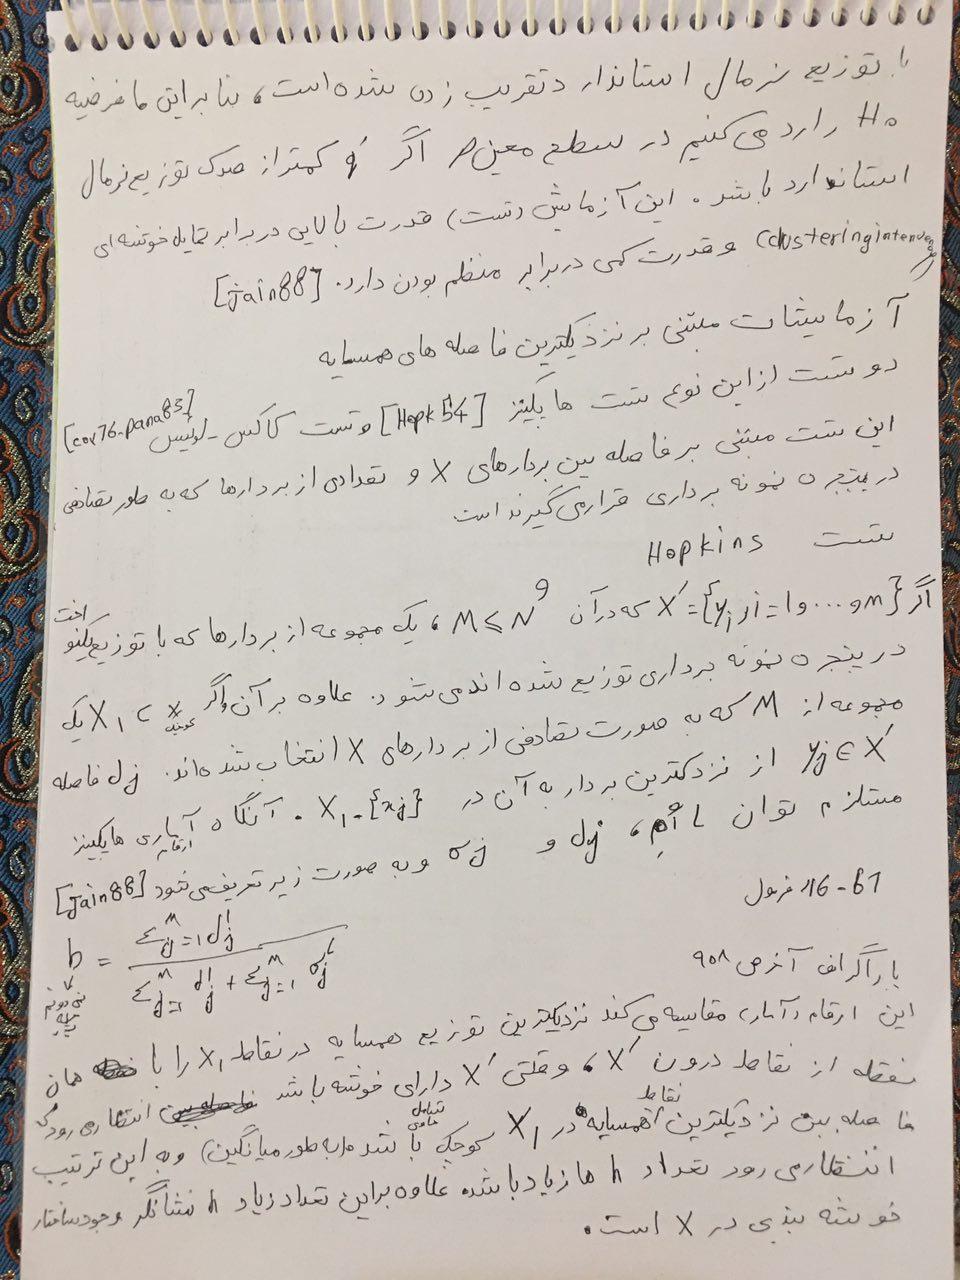 با توزیع نرمال استاندارد تقریب زده شده است، بنابراین ما فرضیه
H0 را رد می‌کنیم در سطح معین ρ اگر q کمتر از صدک توزیع نرمال
استاندارد باشد. این آزمایش (تست) قدرت بالایی در برابر تمایل خوشه‌ای
(clustering و قدرت کمی در برابر منظم بودن دارد. [Jain88]
آزمایشات مبتنی بر نزدیکترین فاصله های همسایه
دو تست از این نوع تست هاپکینز [Hopk 54] و تست کاکس-لوئیس [cox76-pana83]
این تست مبتنی بر فاصله بین بردارهای X و تعدادی از بردارها که به طور تصادفی
در پنجره نمونه برداری قرار می گیرند است
تست Hopkins
اگر X' = {yi, i = 1, ..., M} که در آن M ⩽ N و، یک مجموعه از بردارها که با توزیع یکنواخت
در پنجره نمونه برداری توزیع شده اند می شود. علاوه بر آن اگر X1 ⊂ X یک
مجموعه از M که به صورت تصادفی از بردارهای X انتخاب شده‌اند. dj فاصله
yj ∈ X' از نزدکترین بردار به آن در X1 - {xj}. آنگاه آماری هاپکینز
مستلزم توان dj و σj و به صورت زیر تعریف می شود [Jain88]
16-61 فرمول
h = Σ^M_j=1 d^l_j / Σ^M_j=1 d^l_j + Σ^M_j=1 σ^l_j
پاراگراف آخر ص 908
این ارقام (آمار)، مقایسه می کند نزدیکترین توزیع همسایه در نقاط X1 را با همان
نقطه از نقاط درون X'، وقتی X' دارای خوشه باشد انتظار می رود که
فاصله بین نزدیکترین نقاط همسایه در X1 کوچک باشد (به طور میانگین) و به این ترتیب
انتظار می رود تعداد h ها زیاد باشد علاوه براین تعداد زیاد h نشانگر وجود ساختار
خوشه بندی در X است.